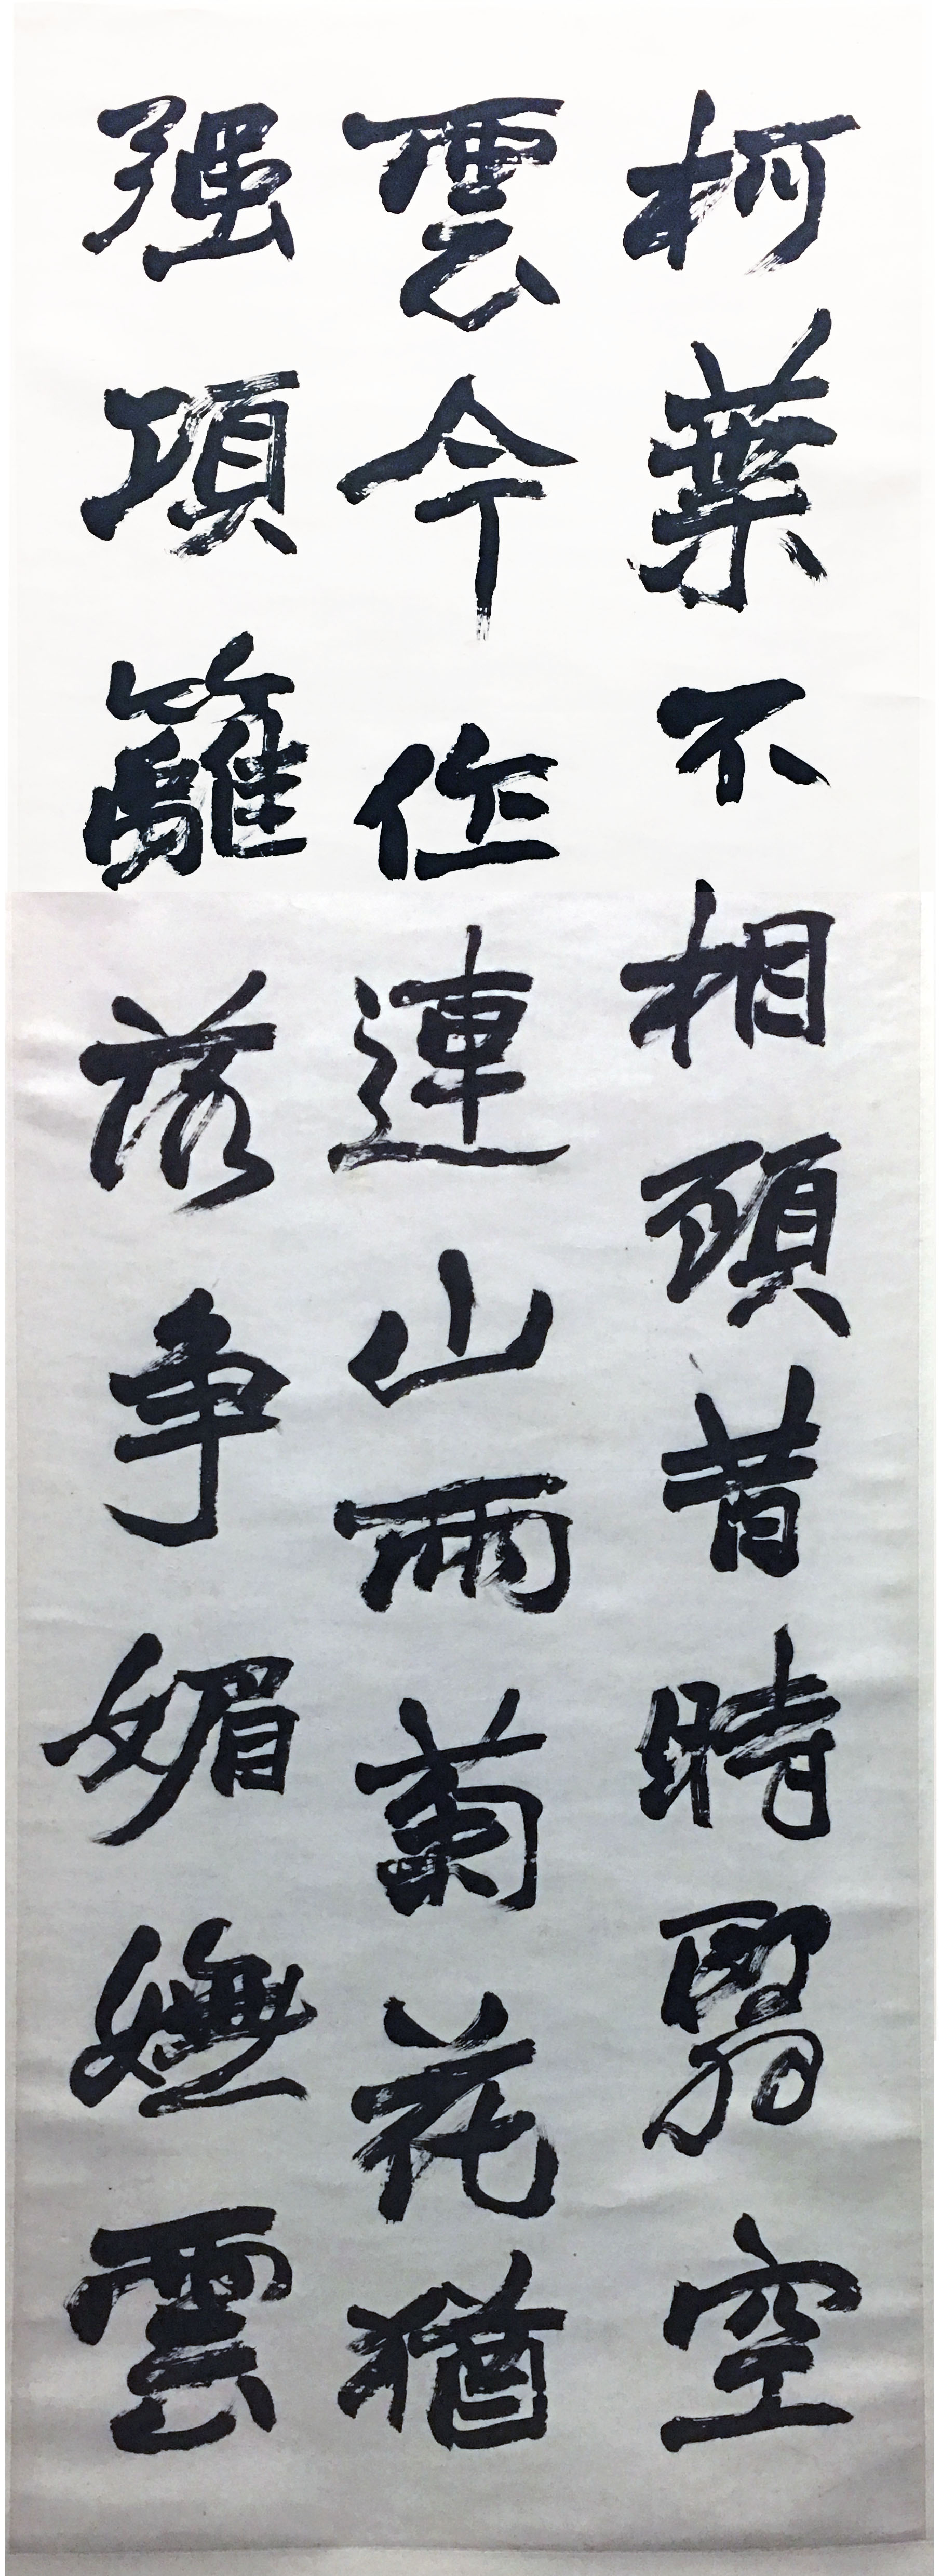 柯葉不相頭昔時翳空
雲今作連山雨菊花猶
强項籬落争媚嫵雲